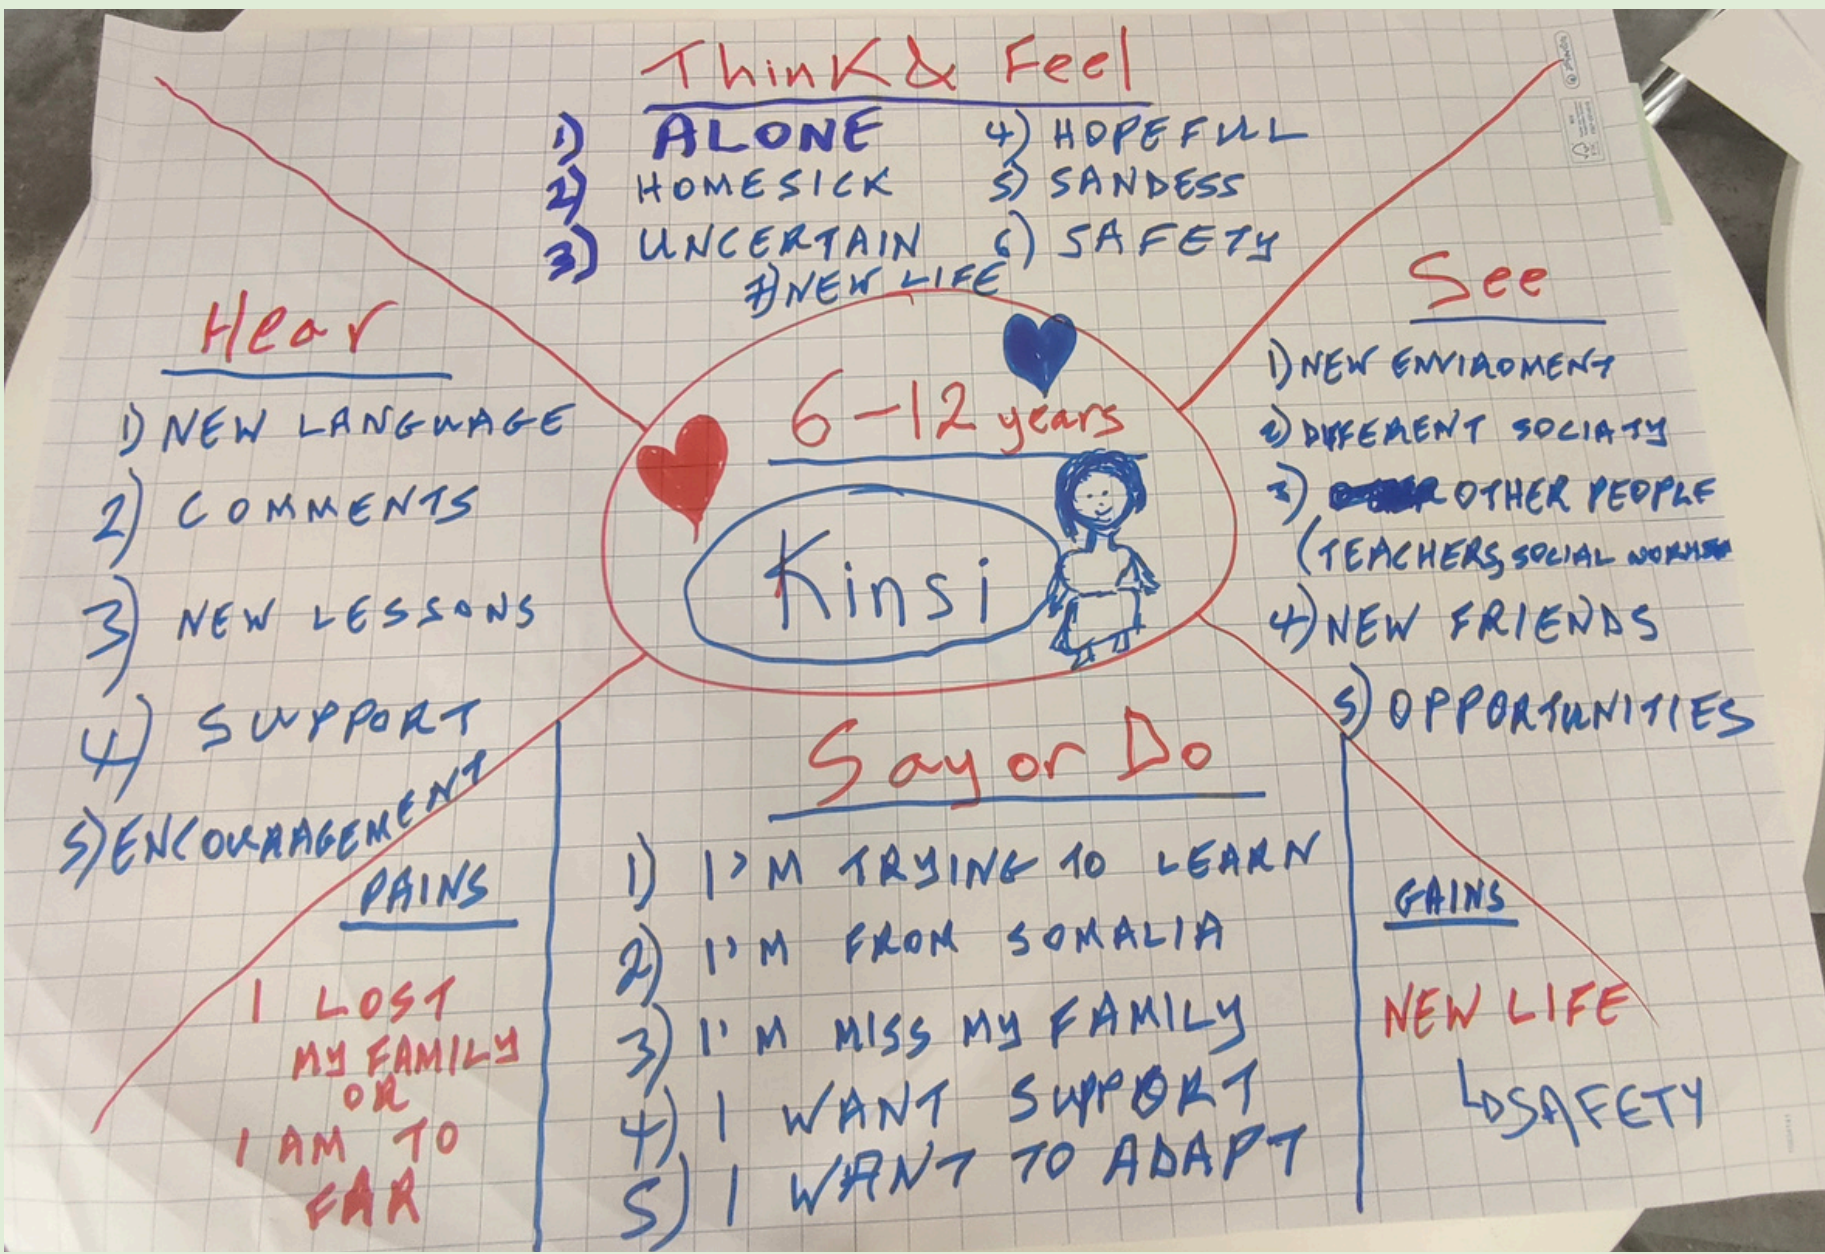 Think & Feel
1) ALONE
2) HOMESICK
3) UNCERTAIN
4) HOPEFULL
5) SANDESS
6) SAFETY
7) NEW LIFE
Hear
1) NEW LANGUAGE
2) COMMENTS
3) NEW LESSONS
4) SUPPORT
5) ENCOURAGEMENT
6-12 years
Kinsi
See
1) NEW ENVIROMENT
2) DIFFERENT SOCIATY
3) OTHER PEOPLE
(TEACHERS, SOCIAL
4) NEW FRIENDS
5) OPPORTUNITIES
PAINS
I LOST
MY FAMILY
OR
I AM TO
FAR
Say or Do
1) I'M TRYING TO LEARN
2) I'M FROM SOMALIA
3) I'M MISS MY FAMILY
4) I WANT SUPPORT
5) I WANT TO ADAPT
GAINS
NEW LIFE
↳SAFETY